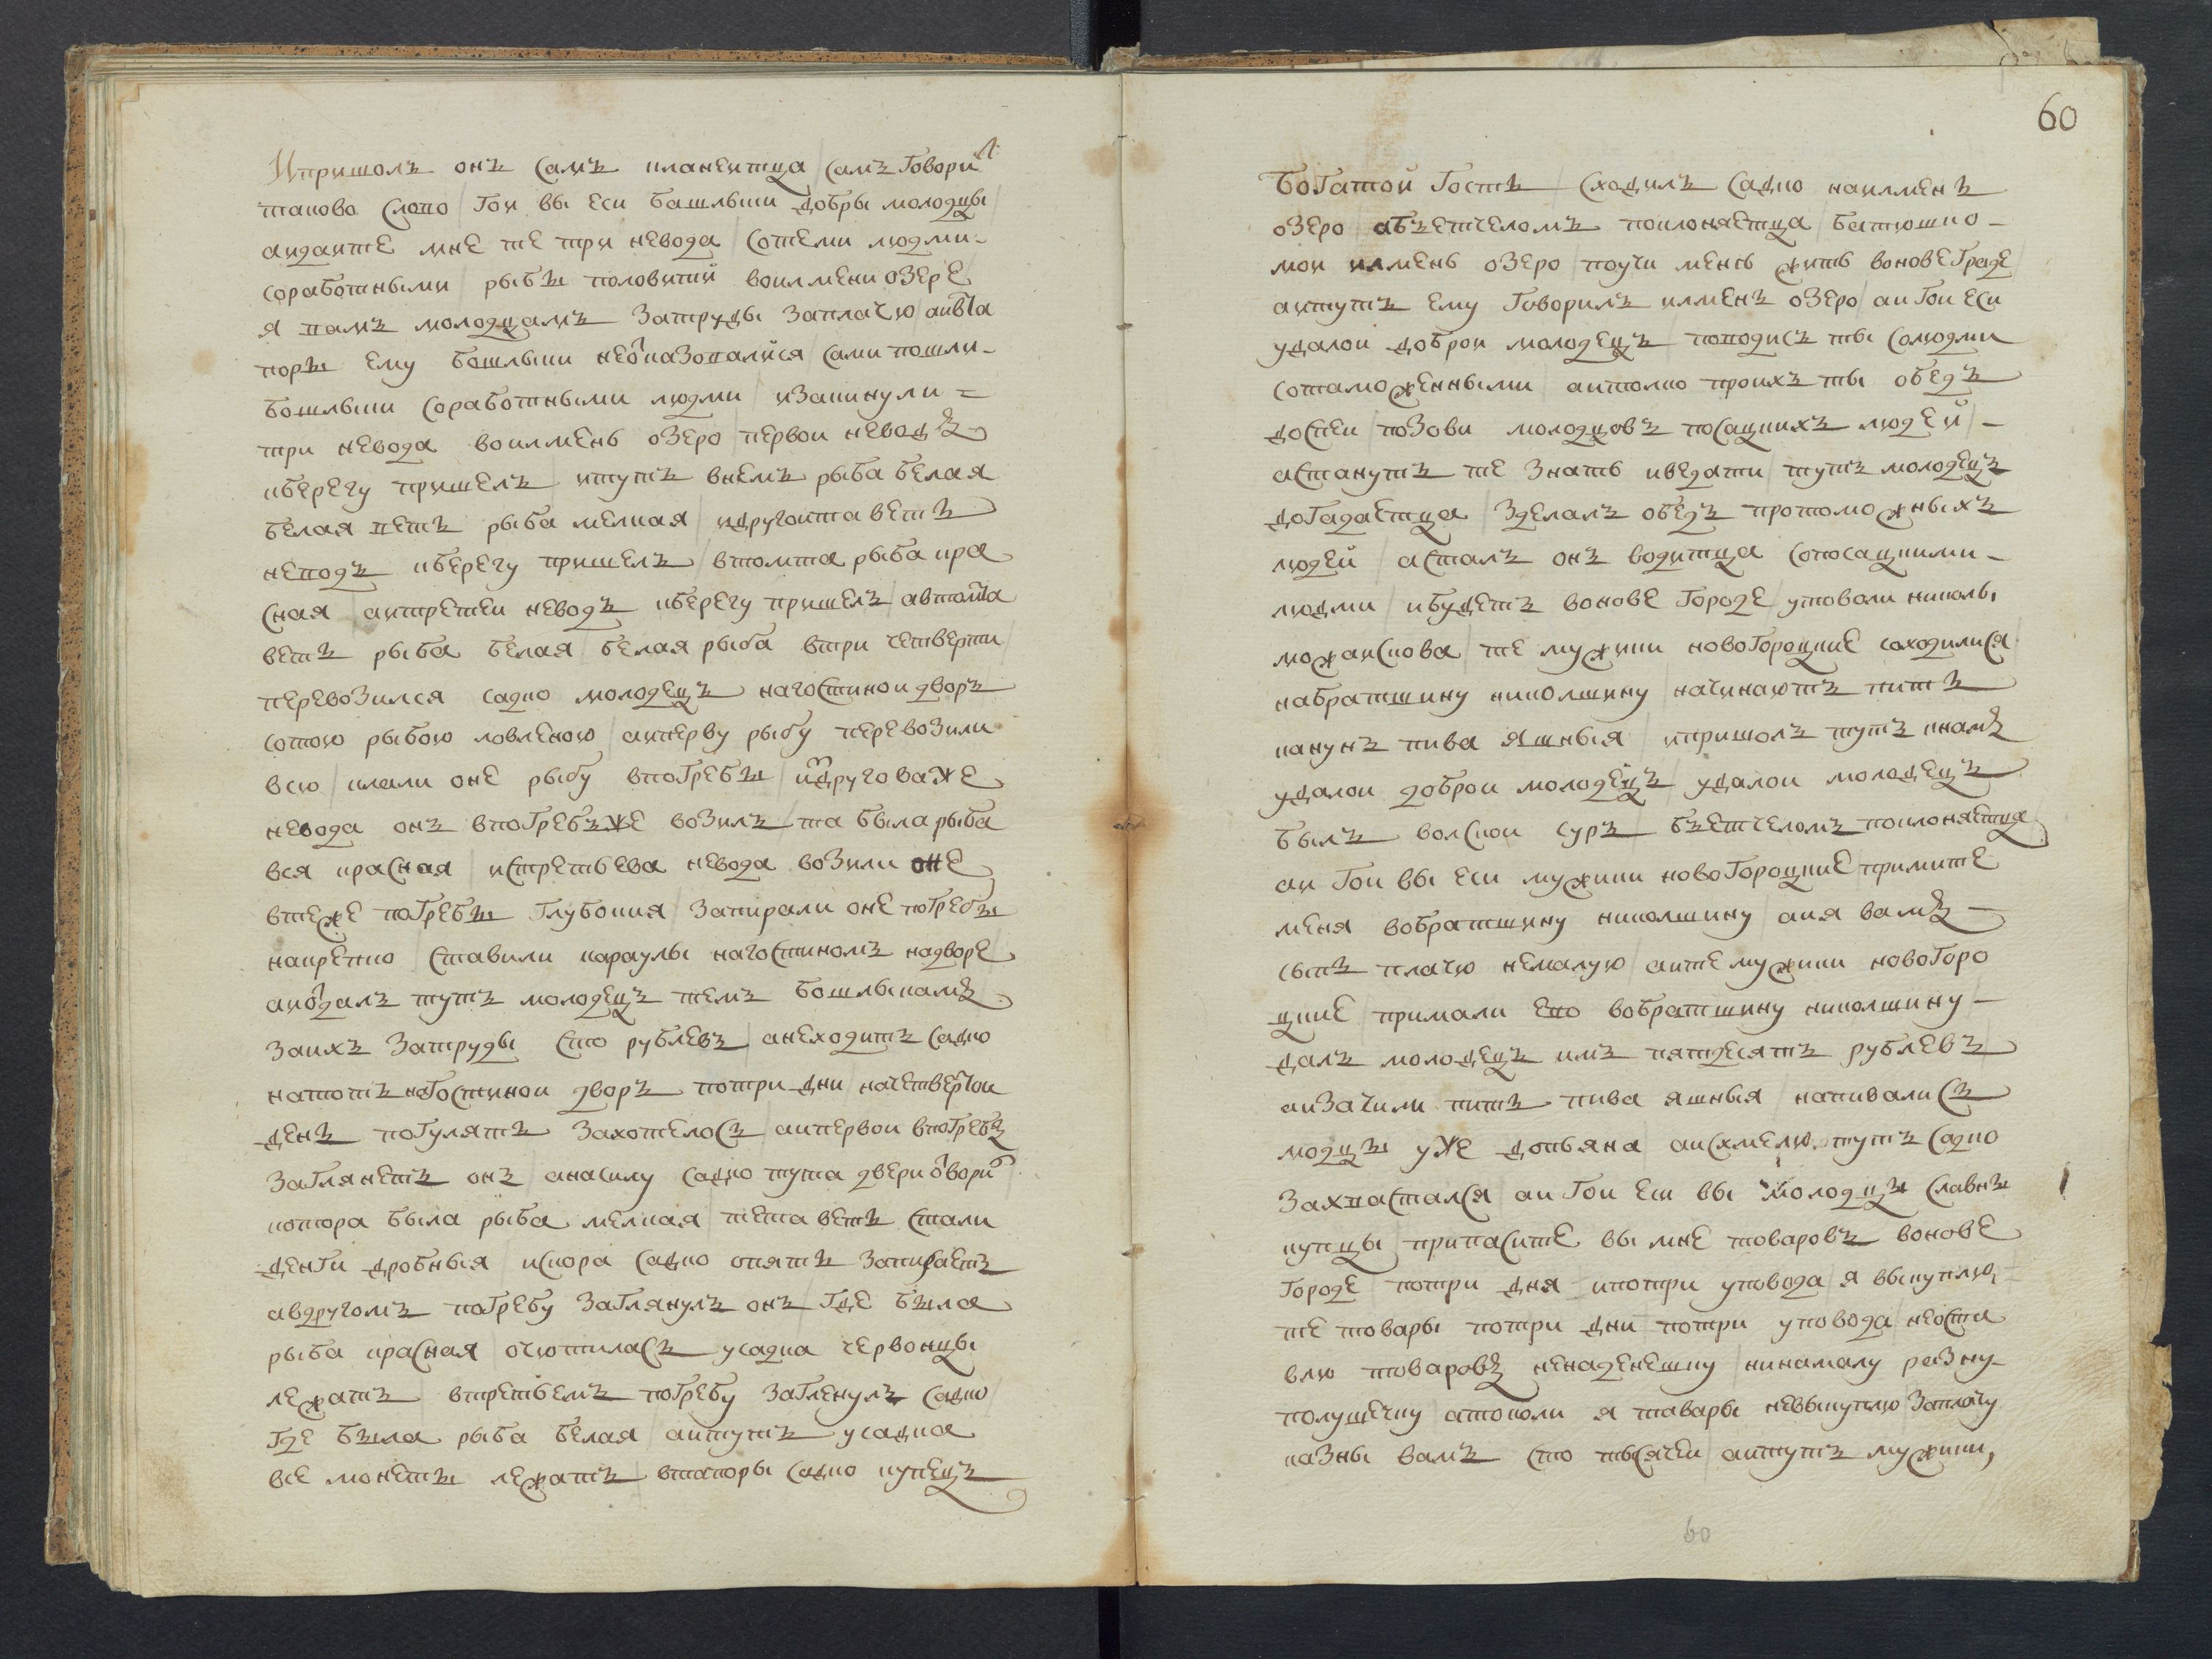 Ипришолъ онъ самъ кланеитца самъ говорил
таково слово гои вы еси башлыки добры молодцы
аидаите мне те три невода сотеми людми
соработными рыбы половитий воилмени озере
я вамъ молодцамъ затруды заплачю аивта
поры ему башлыки неоказовалися сами пошли
бошлыки соработными людми изакинули
три невода воилмень озеро первои неводъ
кберегу пришелъ итутъ внемъ рыба белая
белая ветъ рыба мелкая идругоита ветъ
неводъ кберегу пришелъ втомта рыба кра
сная аитретеи неводъ кберегу пришелъ автомта
ветъ рыба белая белая рыба втри четверти
перевозился садко молодецъ нагостинои дворъ
сотою рыбою ловленою аиперву рыбу перевозили
всю клали оне рыбу впогребы издруговаже
невода онъ впогребъже возилъ та была рыба
вся красная истретьева невода возили оне
втеже погребы глубокия запирали оне погребы
накрепко ставили караулы нагостиномъ надворе
аиотдалъ тутъ молодецъ темъ бошлыкамъ
заихъ затруды сто рублевъ анеходитъ садко
натотъ нагостинои дворъ потри дни начетвертои
день погулятъ захотелосъ аипервои впогребъ
заглянетъ онъ анасилу садко тута двери отворил
котора была рыба мелкая тета ветъ стали
денги дробныя искора садко опятъ запираетъ
авдругомъ погребу заглянулъ онъ где была
рыба красная очютиласъ усадка червонцы
лежатъ втретьемъ погребу загленулъ садко
где была рыба белая аитутъ усадка
все монеты лежатъ втапоры садко купецъ
60
богатои гостъ сходилъ садко наилменъ
озеро абъетчеломъ поклоняетца батюшко
мои илмень озеро поучи менья жить вонове граде
аитутъ ему говорилъ илменъ озеро аи гои еси
удалои доброи молодецъ поводисъ ты солюдми
сотаможенными аитолко проихъ ты обедъ
доспеи позови молодцовъ посацкихъ людей
астанутъ те знать иведати тутъ молодецъ
догадаетца зделалъ обедъ протоможныхъ
людей асталъ онъ водитца сопосацкими
людми ибудетъ вонове городе утовали николы
можаискова те мужики новогороцкие соходилися
набратшину николшину начинаютъ питъ
канунъ пива яшныя ипришолъ тутъ кнамъ
удалои доброи молодецъ удалои молодецъ
былъ волскои суръ бъетчеломъ поклоняетца
аи гои вы еси мужики новогороцкие примите
меня вобратшину николшину аия вамъ
сыпъ плачю немалую аите мужики новогоро
цкие примали ево вобратшину николшину
далъ молодецъ имъ пятдесятъ рублевъ
аизачили питъ пива яшныя напивалисъ
модцы уже допьяна аисхмелю тутъ садко
захвастался аи гои еш вы молодцы славны
купцы припасите вы мне товаровъ вонове
городе потри дня ипотри уповода я выкуплю
те товары потри дни потри уповода неоста
влю товаровъ ненаденешку нинамалу разну
полушечку атополи я тавары невыкуплю заплачу
казны вамъ сто тысячеи аитутъ мужики,
60